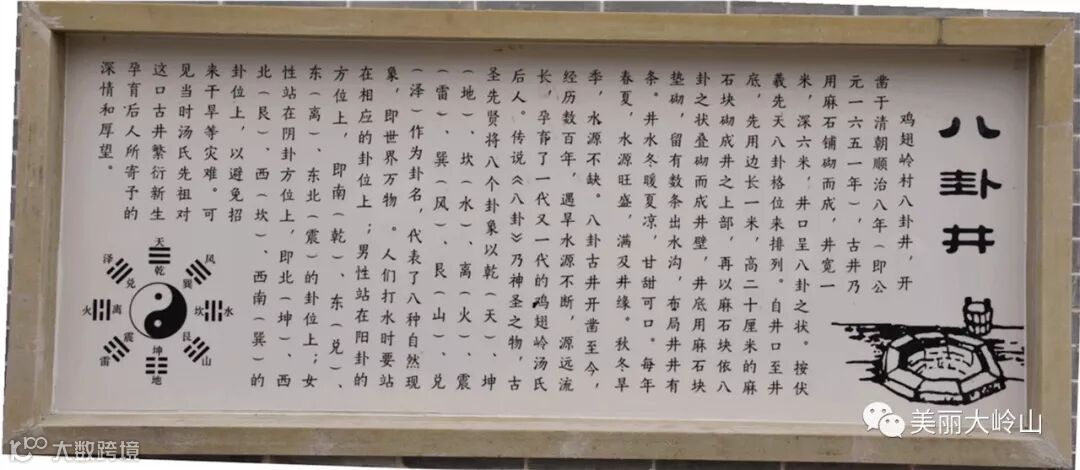 八卦井
鸡翅岭村八卦井，开
凿于清朝顺治八年（即公
元一六五一年），古井乃
用麻石铺砌而成，井宽一
米，深六米，井口呈八卦之状。按伏
羲先天八卦格位来排列。自井口至井
底，先用边长一米，高二十厘米的麻
石块砌成井之上部，再以麻石块依八
卦之状叠砌而成井壁，井底用麻石块
垫砌，留有数条出水沟，布局井井有
条。井水冬暖夏凉，甘甜可口。每年
春夏，水源旺盛，满及井缘。秋冬旱
季，水源不缺。八卦古井开凿至今，
经历数百年，遇旱水源不断，源远流
长，孕育了一代又一代的鸡翅岭汤氏
后人。传说《八卦》乃神圣之物，古
圣先贤将八个卦象以乾（天）、坤
（地）、坎（水）、离（火）、震
（雷）、巽（风）、艮（山）、兑
（泽）作为卦名，代表了八种自然现
象，即世界万物。人们打水时要站
在相应的卦上；男性站在阳卦的
方位上，即南（乾）、东（兑）、
东（离）、东北（震）的卦位上；女
性站在阴卦方位上，即北（坤）、西
北（艮）、西（坎）、西南（巽）的
卦位上，以避免招
来干旱等灾难。可
见当时汤氏先祖对
这口古井繁衍新生
孕育后人所寄予的
深情和厚望。
天
乾
泽
兑
风
巽
火
离
坎
水
雷
震
艮
山
坤
地
美丽大岭山
大数跨境